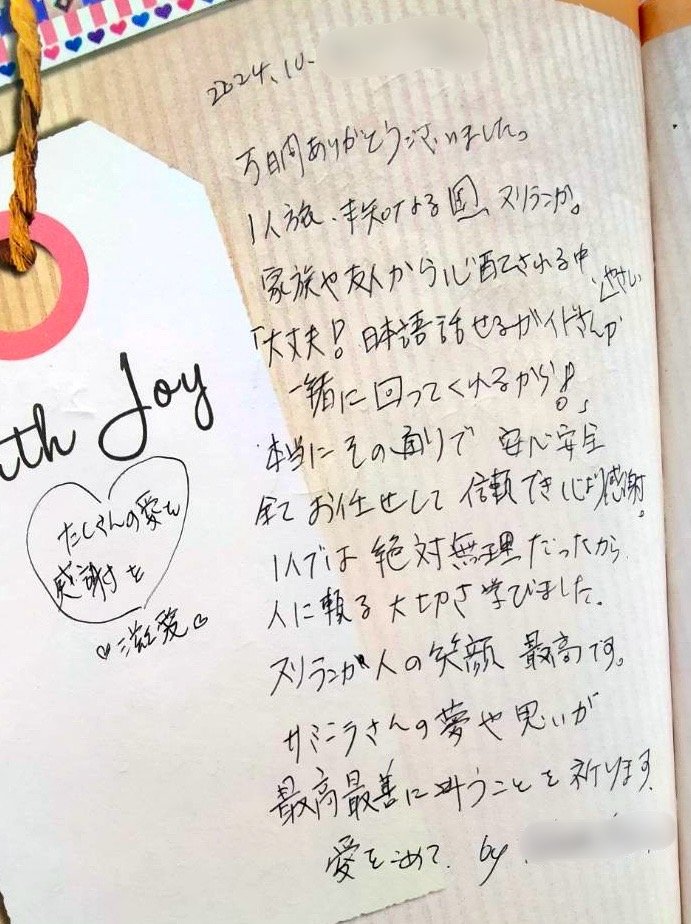 2024.10.
5日間ありがとうございました。
1人旅、未知なる国、スリランカ。
家族や友人から心配される中、
やさしい
「大丈夫！日本語話せるガイドさんが
一緒に回ってくれるから！。」
本当にその通りで 安心安全
全てお任せして 信頼でき心より感謝。
1人では 絶対無理だったから
人に頼る大切さ学びました。
スリランカ人の笑顔 最高です。
サミーラさんの夢や思いが
最高最善に叶うことを祈ります。
愛をこめて. by
ith Joy
たくさんの愛を
感謝を
♡滋愛♡